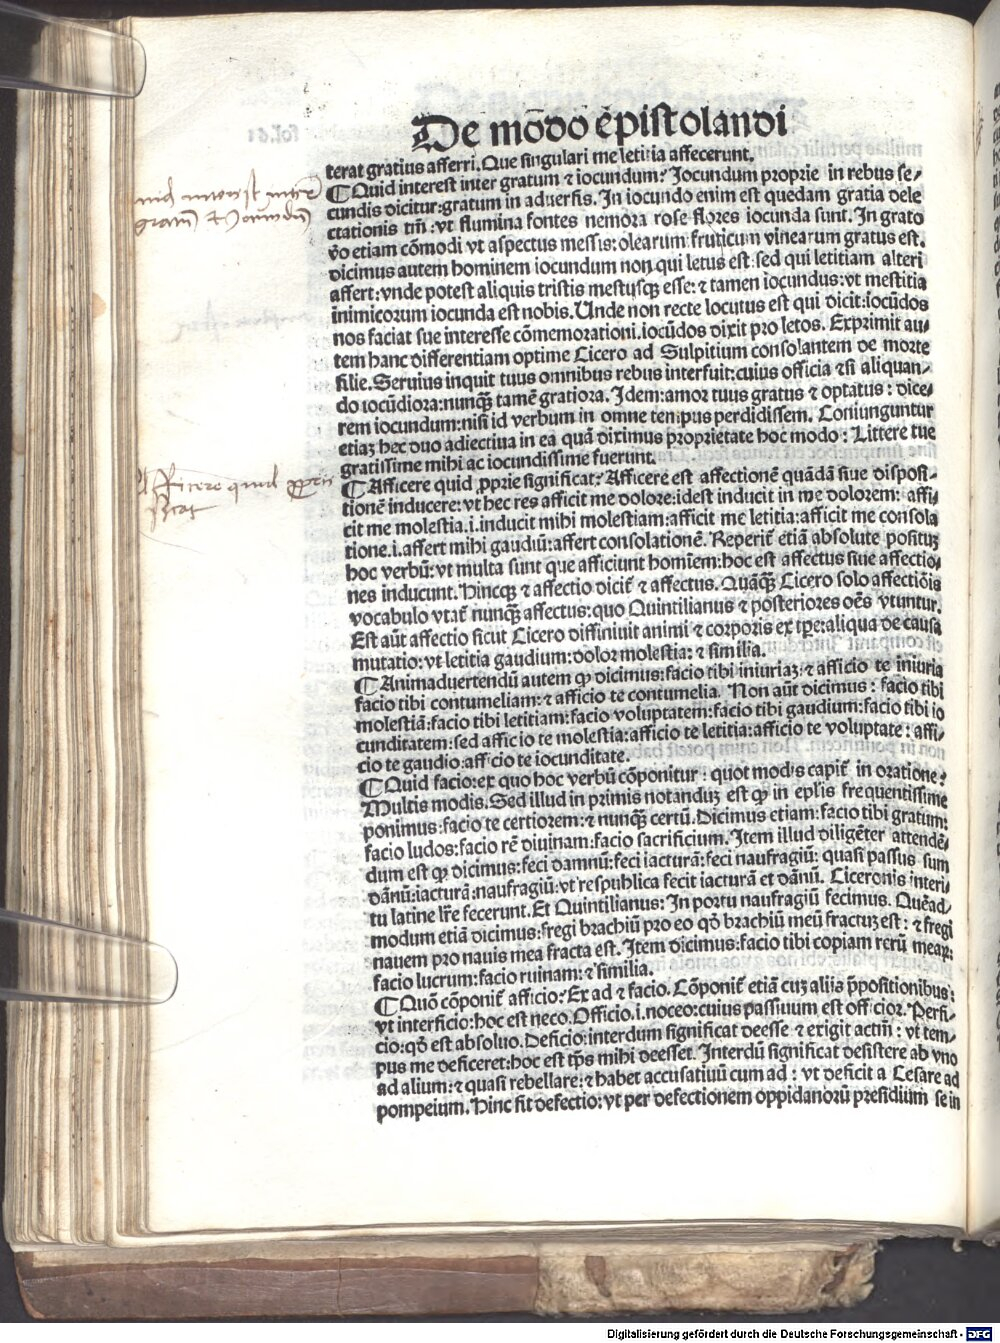 De mōdo ēpistolandi
terat gratius afferri. Que singulari me letitia affecerunt.
¶ Quid interest inter gratum ⁊ iocundum? Jocundum proprie in rebus se⸗
cundis dicitur: gratum in aduersis. In iocundo enim est quedam gratia dele
ctationis tm̄: vt flumina fontes nemora rose flores iocunda sunt. In grato
v̄o etiam cōmodi vt aspectus messis: olearum: fruticum vinearum gratus est.
dicimus autem hominem iocundum non qui letus est: sed qui letitiam alteri
affert: vnde potest aliquis tristis mestusqꝫ esse: ⁊ tamen iocundus: vt mestitia
inimicorum iocunda est nobis. Unde non recte locutus est qui dicit: iocūdos
nos faciat sue interesse cōmemorationi. iocūdos dixit pro letos. Exprimit au⸗
tem hanc differentiam optime Cicero ad Sulpitium consolantem de morte
filie. Seruius inquit tuus omnibus rebus interfuit: cuius officia etsi aliquan⸗
do iocūdiora: nunqꝫ̄ tamē gratiora. Idem: amor tuus gratus ⁊ optatus: dice⸗
rem iocundum: nisi id verbum in omne tempus perdidissem. Coniunguntur
etiaꝫ hec duo adiectiua in ea quā diximus proprietate hoc modo: Littere tue
gratissime mihi ac iocundissime fuerunt.
¶ Afficere quid ꝓprie significat? Afficere est affectionē quādā siue disposi⸗
tionē inducere: vt hec res afficit me dolore: idest inducit in me dolorem: affi
cit me molestia. i. inducit mihi molestiam: afficit me letitia: afficit me consola
tione. i. affert mihi gaudiū: affert consolationē. Reperit̄ etiā absolute positus
hoc verbū: vt multa sunt que afficiunt homīem: hoc est affectus siue affectio⸗
nes inducunt. Hincqꝫ ⁊ affectio dicit̄ ⁊ affectus. Quāqꝫ̄ Cicero solo affectiōis
vocabulo vtat̄ nunqꝫ̄ affectus: quo Quintilianus ⁊ posteriores oēs vtuntur.
Est aūt affectio sicut Cicero diffiniuit animi ⁊ corporis ex tp̄e: aliqua de causa
mutatio: vt letitia gaudium: dolor molestia: ⁊ similia.
¶ Animaduertendū autem ꝙ dicimus: facio tibi iniuriaꝫ: ⁊ afficio te iniuria
facio tibi contumeliam: ⁊ afficio te contumelia. Non aūt dicimus: facio tibi
molestiā: facio tibi letitiam: facio voluptatem: facio tibi gaudium: facio tibi io
cunditatem: sed afficio te molestia: afficio te letitia: afficio te voluptate: affi⸗
cio te gaudio: afficio te iocunditate.
¶ Quid facio: ex quo hoc verbū cōponitur: quot modis capit̄ in oratione?
Multis modis. Sed illud in primis notanduꝫ est ꝙ in eplis frequentissime
ponimus: facio te certiorem: ⁊ nunqꝫ̄ certū. Dicimus etiam: facio tibi gratum:
facio ludos: facio rē diuinam: facio sacrificium. Item illud diligēter attendē⸗
dum est ꝙ dicimus: feci damnū: feci iacturā: feci naufragiū: quasi passus sum
dānū: iacturā: naufragiū: vt respublica fecit iacturā et dānū. Ciceronis interi⸗
tu latine lr̄e fecerunt. Et Quintilianus: In portu naufragiū fecimus. Quēad⸗
modum etiā dicimus: fregi brachiū pro eo qō brachiū meū fractuꝫ est: ⁊ fregi
nauem pro nauis mea fracta est. Item dicimus: facio tibi copiam rerū meaꝝ:
facio lucrum: facio ruinam: ⁊ similia.
¶ Quō cōponit̄ afficio? Ex ad ⁊ facio. Cōponit̄ etiā cuꝫ alijs p̄positionibus:
vt interficio: hoc est neco. Officio. i. noceo: cuius passiuum est officior. Perfi⸗
cio: qō est absoluo. Deficio: interdum significat deesse ⁊ exigit actm̄: vt tem⸗
pus me deficeret: hoc est tp̄s mihi deesset. Interdū significat desistere ab vno
ad alium: ⁊ quasi rebellare: ⁊ habet accusatiuū cum ad: vt deficit a Cesare ad
pompeium. Hinc fit defectio: vt per defectionem oppidanorū presidium se in
Digitalisierung gefördert durch die Deutsche Forschungsgemeinschaft - DFG